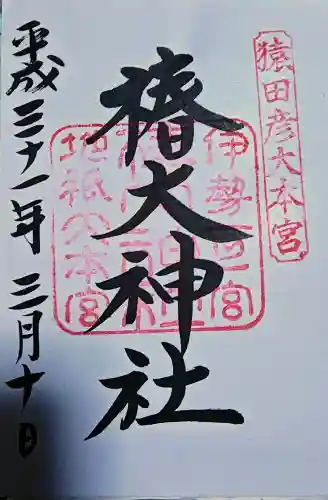 猿田彦大本宮
椿大神社
伊勢一之宮
地祇大本宮
平成三十一年三月十日